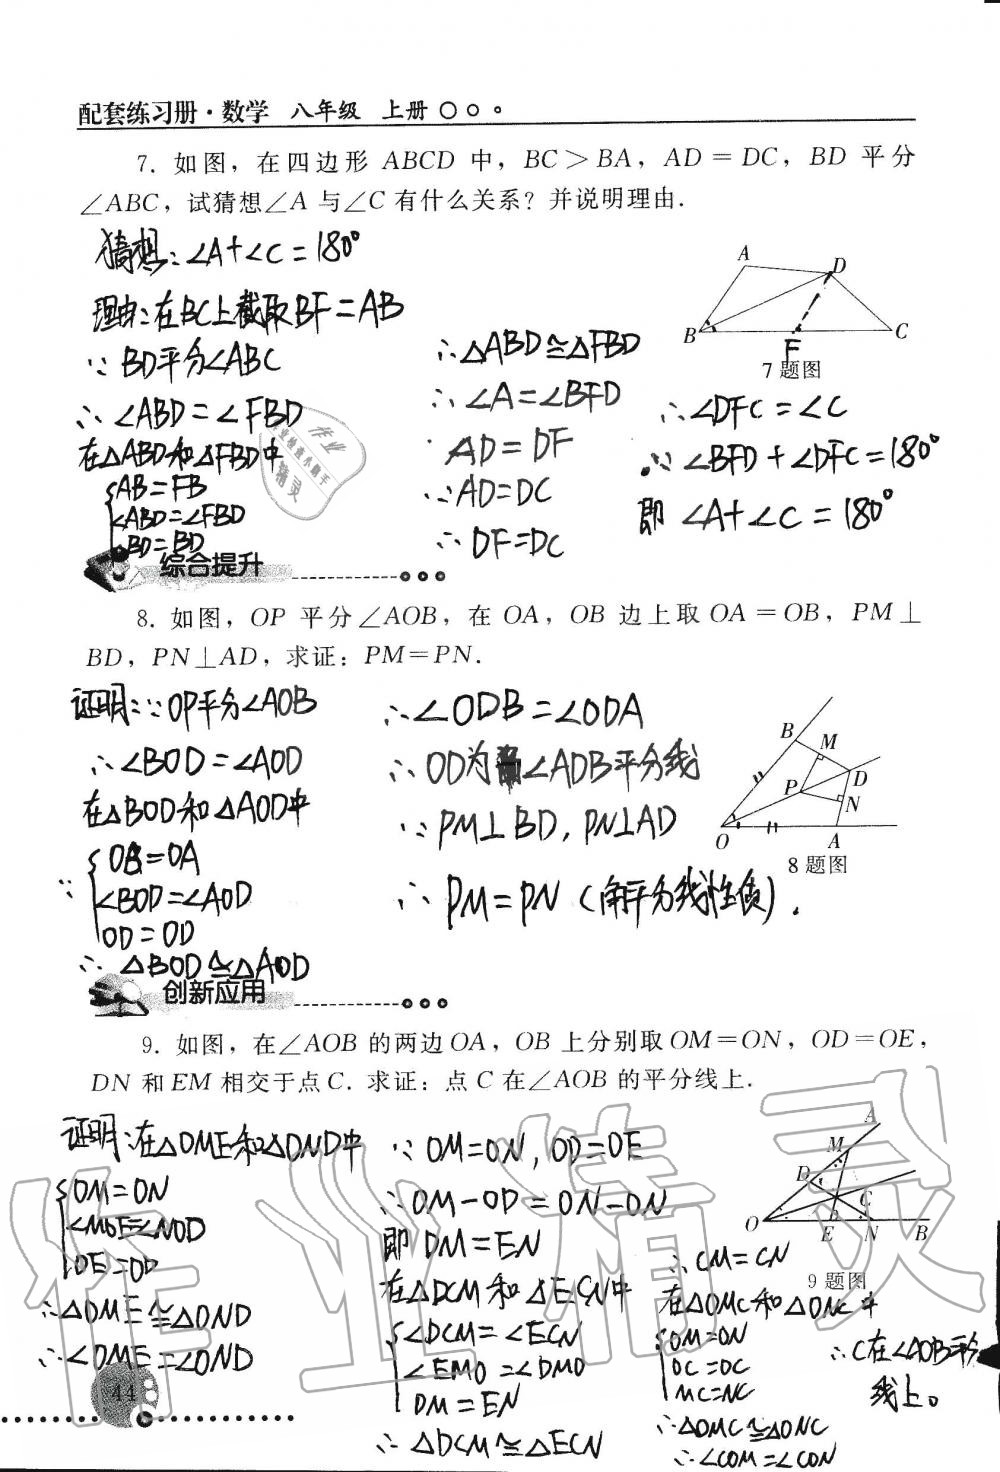 配套练习册·数学 八年级 上册
7. 如图，在四边形 ABCD 中，BC＞BA，AD＝DC，BD 平分
∠ABC，试猜想∠A 与∠C 有什么关系？并说明理由.
猜想：∠A+∠C=180°
理由：在BC上截取BF=AB
∵ BD平分∠ABC
∴ ∠ABD=∠FBD
在△ABD和△FBD中
AB=FB
∠ABD=∠FBD
BD=BD
∴△ABD≌△FBD
∴∠A=∠BFD
AD=DF
∵AD=DC
∴DF=DC
∴∠DFC=∠C
∵∠BFD+∠DFC=180°
即 ∠A+∠C=180°
A
D
B
F
C
7 题图
作业
精灵
综合提升
8. 如图，OP 平分∠AOB，在 OA，OB 边上取 OA＝OB，PM⊥
BD，PN⊥AD，求证：PM＝PN.
证明：∵OP平分∠AOB
∴∠BOD=∠AOD
在△BOD和△AOD中
OB=OA
∵ ∠BOD=∠AOD
OD=OD
∴ △BOD≌△AOD
∴∠ODB=∠ODA
∴OD为∠ADB平分线
∵PM⊥BD，PN⊥AD
∴PM=PN（角平分线性质）.
B
M
P
D
N
O
A
8 题图
创新应用
9. 如图，在∠AOB 的两边 OA，OB 上分别取 OM＝ON，OD＝OE，
DN 和 EM 相交于点 C. 求证：点 C 在∠AOB 的平分线上.
证明：在△OME和△OND中
OM=ON
∠MOE=∠NOD
OE=OD
∴△OME≌△OND
∴∠OME=∠OND
∵OM=ON，OD=OE
∴OM-OD=ON-ON
即 DM=EN
在△DCM和△ECN中
∠DCM=∠ECN
∠EMO=∠DMO
DM=EN
∴△DCM≌△ECN
A
M
D
C
O
E
N
B
9 题图
∴CM=CN
在△OMC和△ONC中
OM=ON
OC=OC
MC=NC
∴△OMC≌△ONC
∴∠COM=∠CON
∴C在∠AOB平分
线上。
44
作业精灵